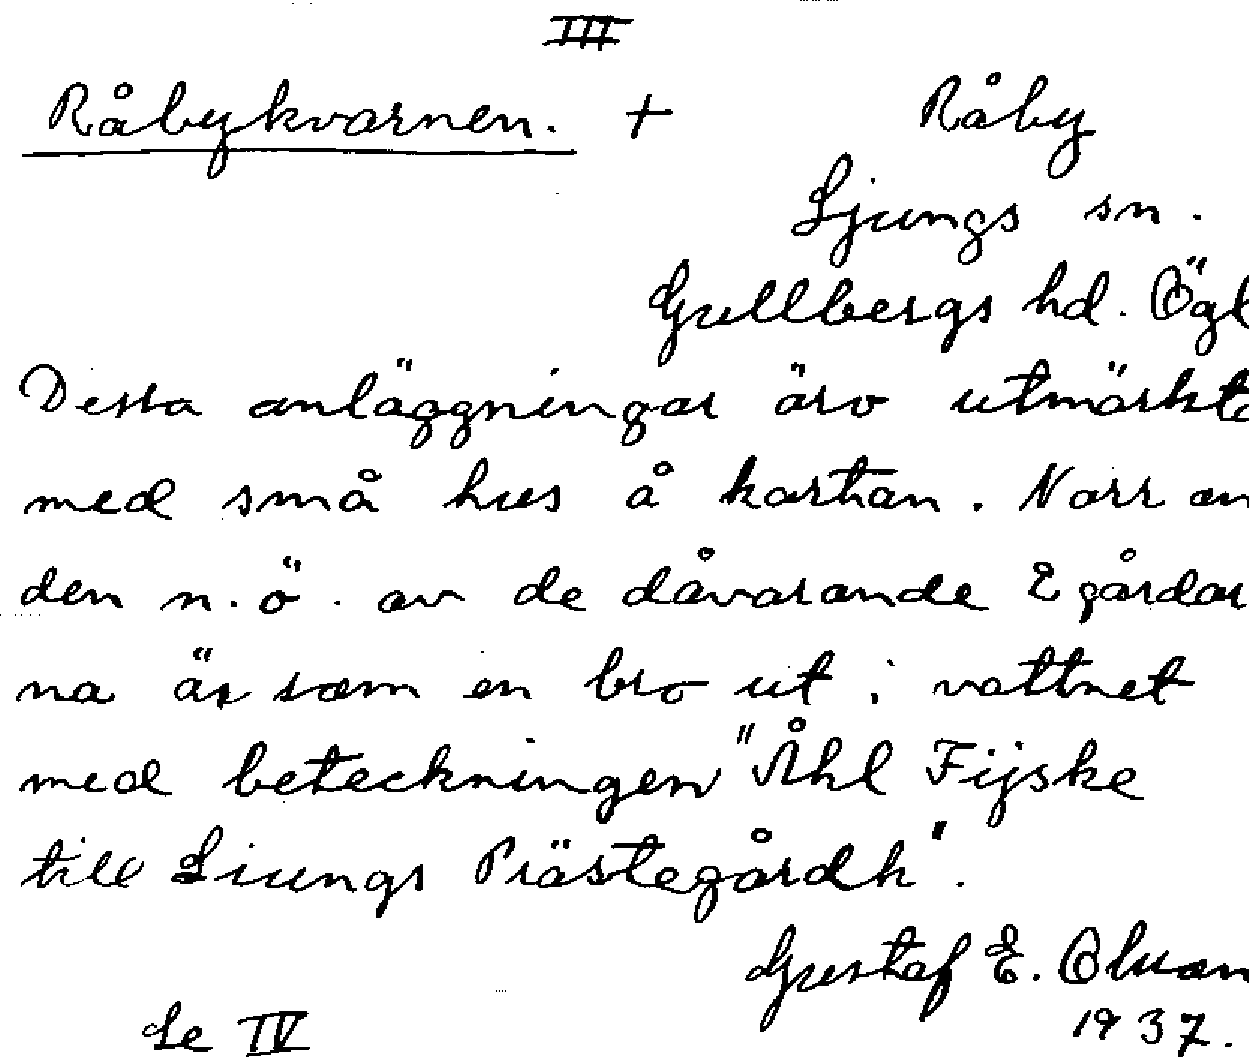 III
Råbykvarnen. + Råby
Ljungs sn.
Gullbergs hd. Ögl
Dessa anläggningar äro utmärkta
med små hus å kartan. Norr om
den n.ö. av de dåvarande 2 gårdar
na är som en bro ut i vattnet
med beteckningen "Åhl Fijske
till Liungs Prästegårdh".
Gustaf E. Olson
1937.
Se IV